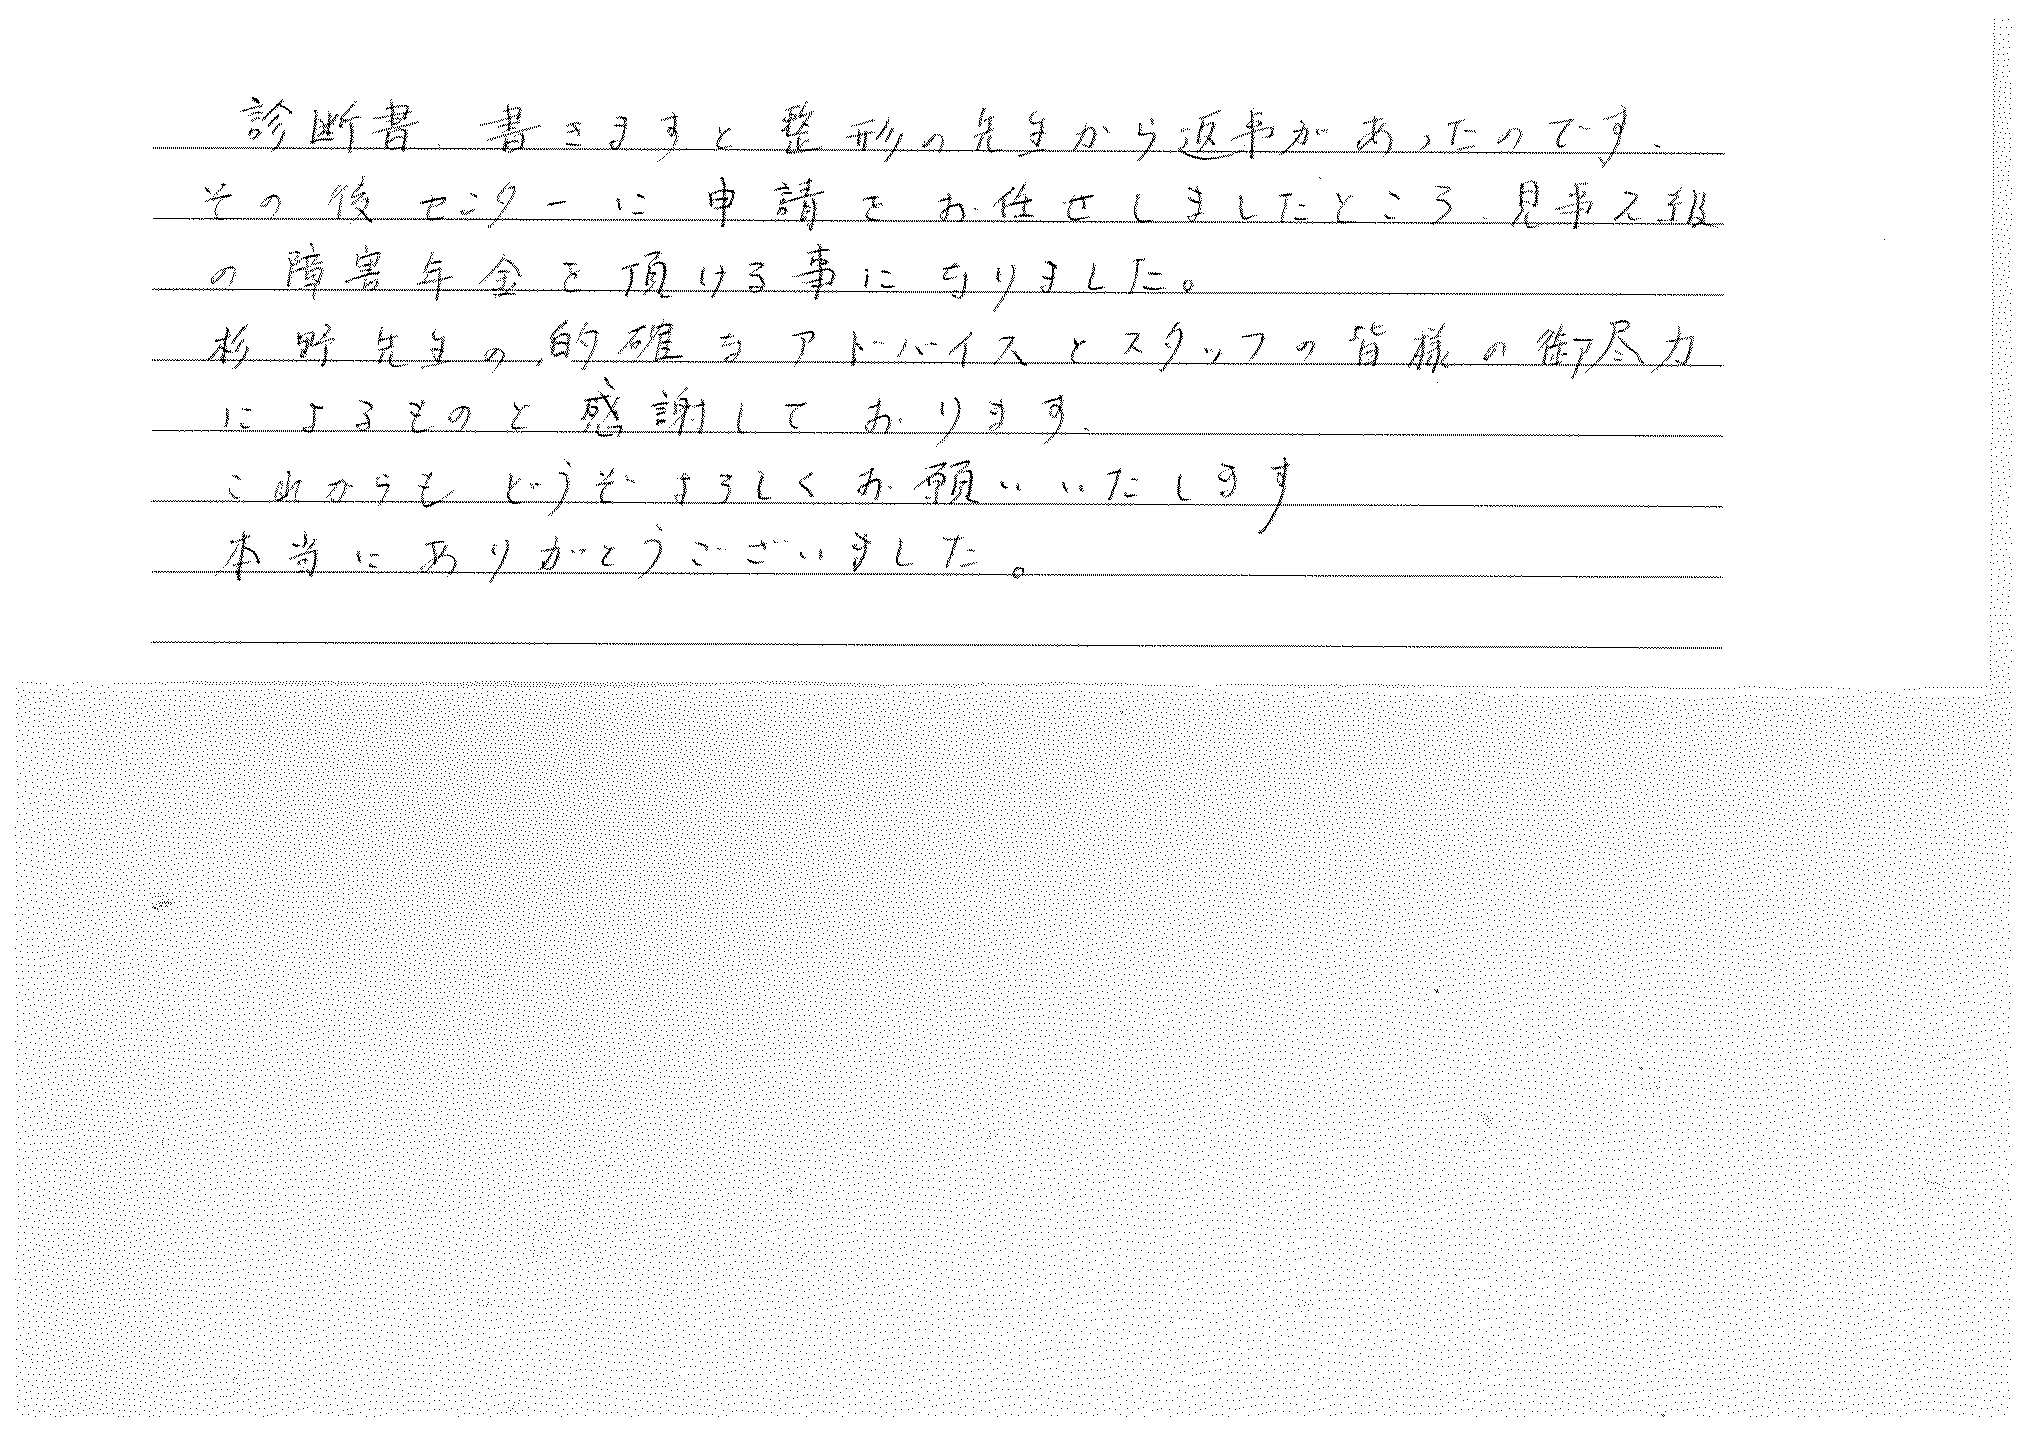 診断書、書きますと整形の先生から返事があったのです、
その後センターに申請をお任せしましたところ、見事2級
の障害年金を頂ける事になりました。
杉野先生の、的確なアドバイスとスタッフの皆様の御尽力
によるものと感謝しております、
これからもどうぞよろしくお願いいたします
本当にありがとうございました。